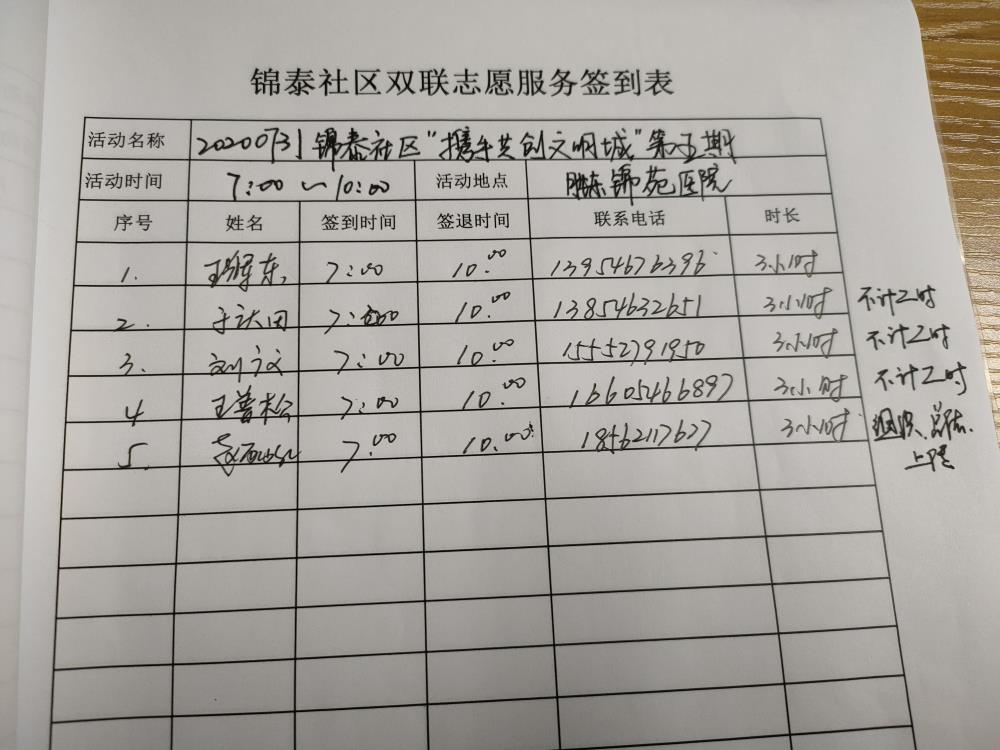 锦泰社区双联志愿服务签到表
活动名称 20200731锦泰社区"携手共创文明城"第五期
活动时间 7:00~10:00 活动地点 胜东锦苑医院
序号 姓名 签到时间 签退时间 联系电话 时长
1. 东 7:00 10:00 13954676396 3小时
2. 于沃田 7:00 10:00 13854632651 3小时 不计工时
3. 刘文 7:00 10:00 15552791950 3小时 不计工时
4 王鲁松 7:00 10:00 16605466897 3小时 不计工时
5. 7:00 10:00 18562117627 3小时 组织、总结、
上传